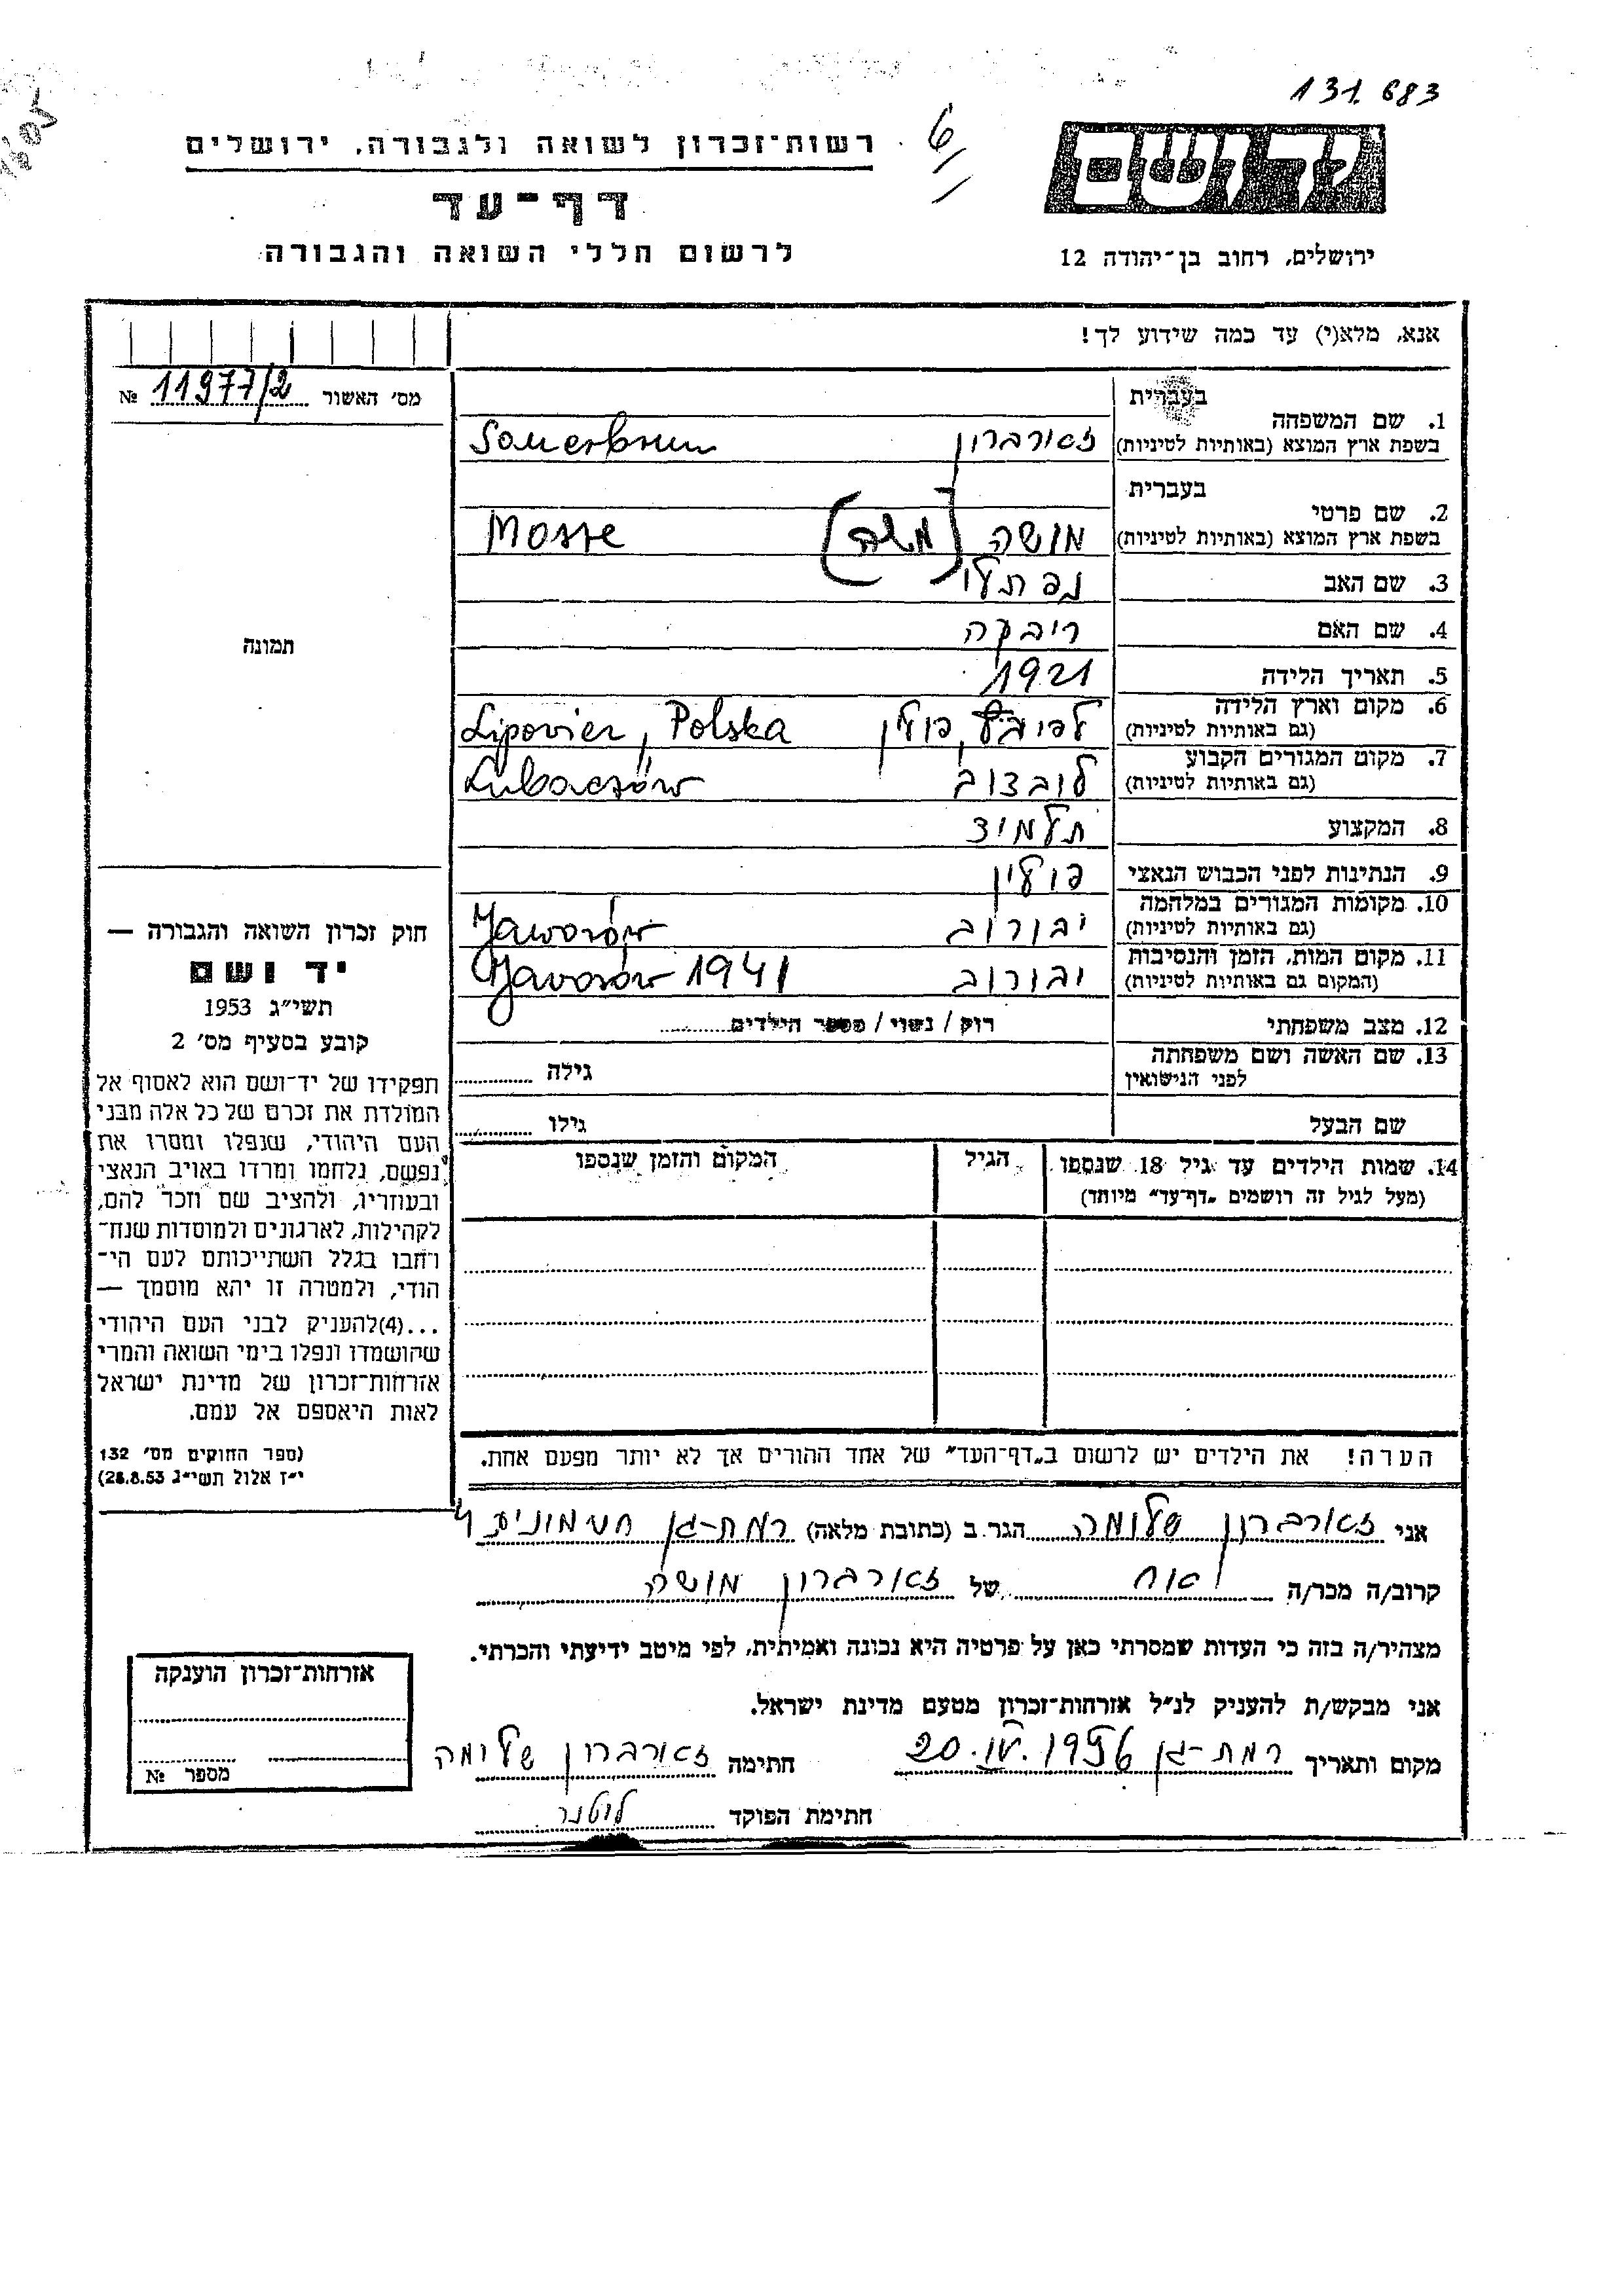 131.683
6
רשות־זכרון לשואה ולגבורה, ירושלים
דף־עד
לרשום חללי השואה והגבורה
ידושם
ירושלים, רחוב בן־יהודה 12
אנא, מלא(י) עד כמה שידוע לך!
מס׳ האשור 11977/2 №
בעברית
1. שם המשפחה
בשפת ארץ המוצא (באותיות לטיניות) זאורברון Sauerbrun
בעברית
2. שם פרטי
בשפת ארץ המוצא (באותיות לטיניות) מושה (משה) Mosze
3. שם האב נפתלי
4. שם האם ריבקה
5. תאריך הלידה 1921
6. מקום וארץ הלידה
(גם באותיות לטיניות) פולין Lipovier, Polska
7. מקום המגורים הקבוע
(גם באותיות לטיניות) לובצוב Lubaczów
8. המקצוע תלמיד
9. הנתינות לפני הכבוש הנאצי פולין
10. מקומות המגורים במלחמה
(גם באותיות לטיניות) יבורוב Jaworów
11. מקום המות, הזמן והנסיבות
(המקום גם באותיות לטיניות) יבורוב Javorów 1941
12. מצב משפחתי רוק / נשוי / מספר הילדים
13. שם האשה ושם משפחתה
לפני הנישואין גילה
שם הבעל גילו
14. שמות הילדים עד גיל 18 שנספו הגיל המקום והזמן שנספו
(מעל לגיל זה רושמים „דף־עד״ מיוחד)
הערה! את הילדים יש לרשום ב„דף־העד״ של אחד ההורים אך לא יותר מפעם אחת.
תמונה
חוק זכרון השואה והגבורה —
יד ושם
תשי״ג 1953
קובע בסעיף מס׳ 2
תפקידו של יד־ושם הוא לאסוף אל
המולדת את זכרם של כל אלה מבני
העם היהודי, שנפלו ומסרו את
נפשם, נלחמו ומרדו באויב הנאצי
ובעוזריו, ולהציב שם וזכר להם,
לקהילות, לארגונים ולמוסדות שנח־
רחבו בגלל השתייכותם לעם הי־
הודי, ולמטרה זו יהא מוסמך —
...(4)להעניק לבני העם היהודי
שהושמדו ונפלו בימי השואה והמרי
אזרחות־זכרון של מדינת ישראל
לאות היאספם אל עמם.
(ספר החוקים מס׳ 132
י״ז אלול תשי״ג 28.8.53)
אני זאורברון שלומה הגר ב (כתובת מלאה) רמת-גן
קרוב/ה מכר/ה אח של זאורברון מושה
מצהיר/ה בזה כי העדות שמסרתי כאן על פרטיה היא נכונה ואמיתית, לפי מיטב ידיעתי והכרתי.
אני מבקש/ת להעניק לנ״ל אזרחות־זכרון מטעם מדינת ישראל.
מקום ותאריך רמת-גן 20.IV.1956 חתימה זאורברון שלומה
חתימת הפוקד
אזרחות־זכרון הוענקה
מספר №